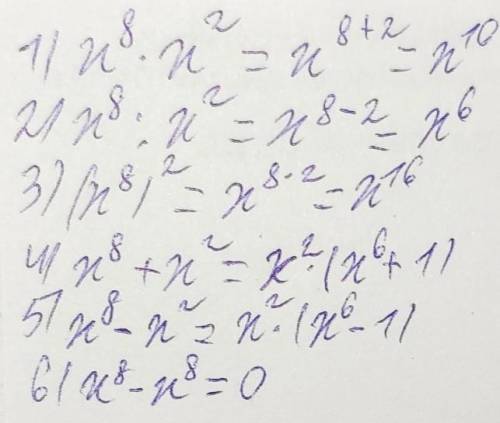 1) x⁸ · x² = x⁸⁺² = x¹⁰
2) x⁸ : x² = x⁸⁻² = x⁶
3) (x⁸)² = x⁸·² = x¹⁶
4) x⁸ + x² = x² · (x⁶ + 1)
5) x⁸ - x² = x² · (x⁶ - 1)
6) x⁸ - x⁸ = 0